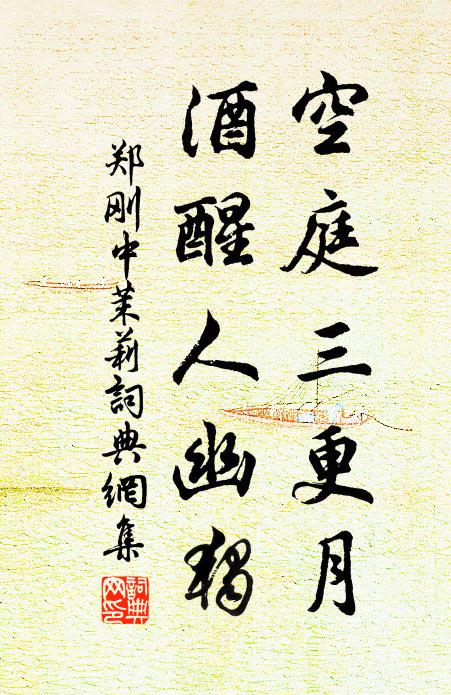 空庭三更月
酒醒人幽独
郑刚中茉莉詞典網集
詞典网印